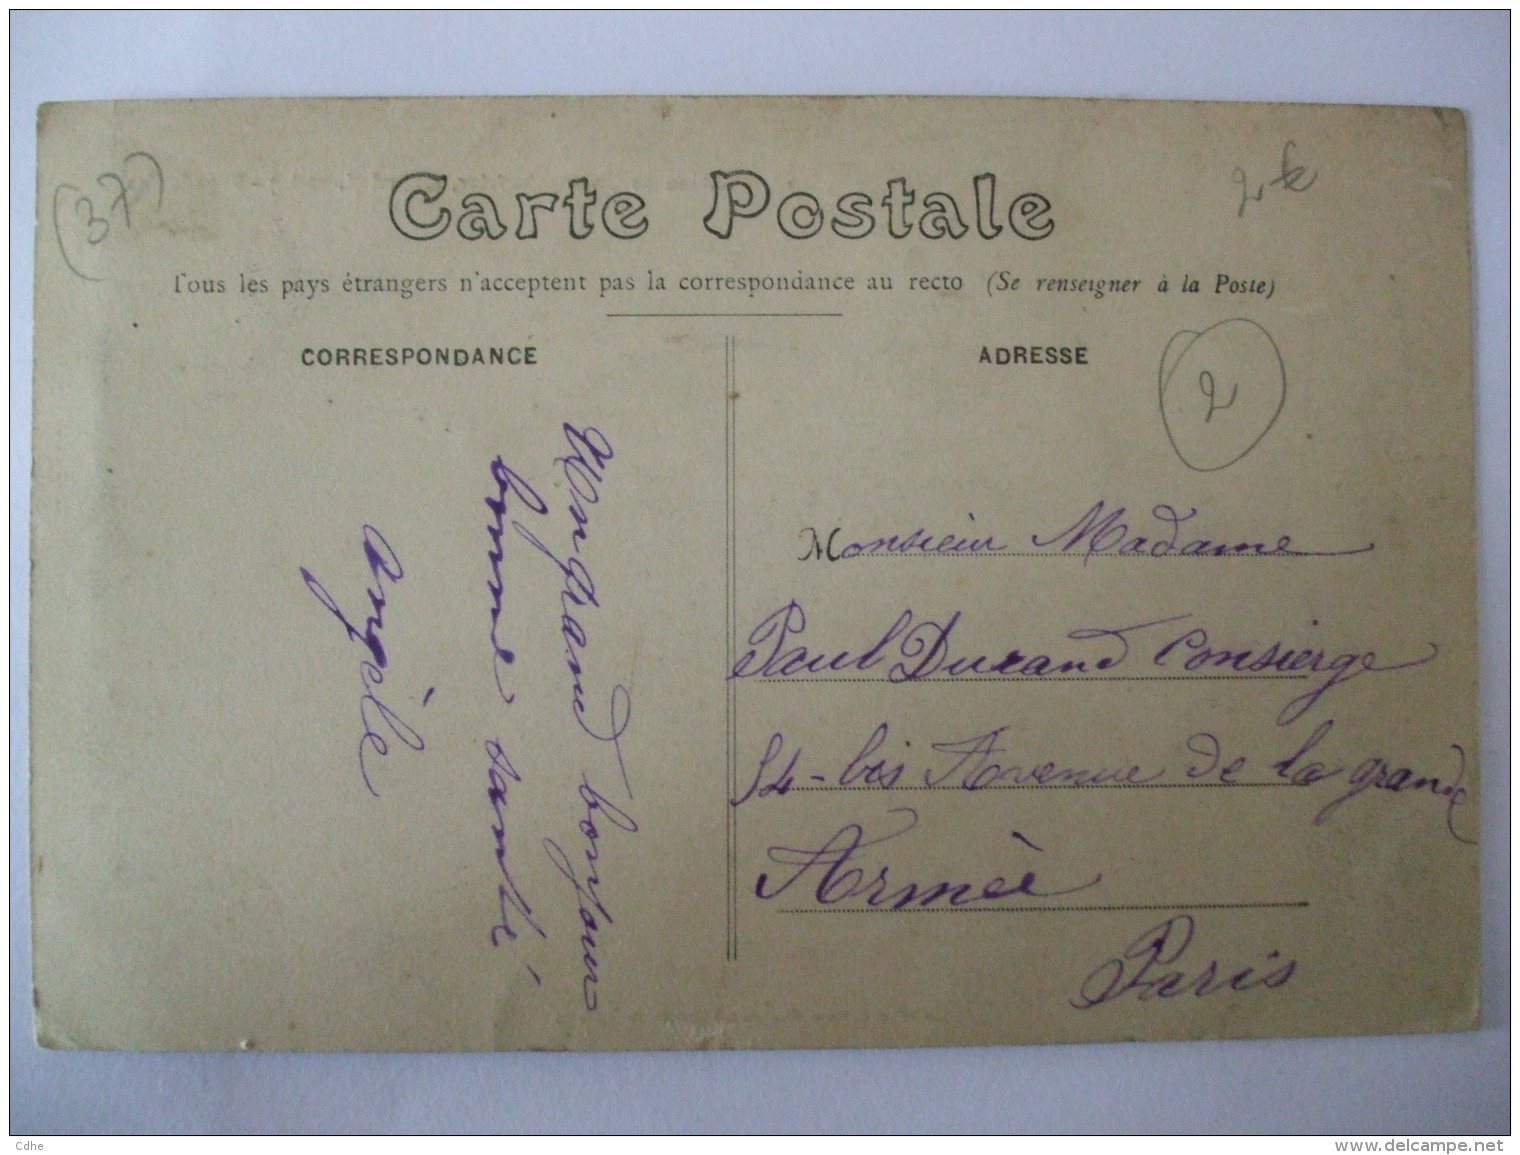 (37)
Carte Postale
2k
Tous les pays étrangers n'acceptent pas la correspondance au recto (Se renseigner à la Poste)
CORRESPONDANCE
Un grand bonjour
bonne santé
Angèle
ADRESSE
2
Monsieur Madame
Paul Durand Consierge
54-bis Avenue de la grande
Armèe
Paris
Cdhe
www.delcampe.net